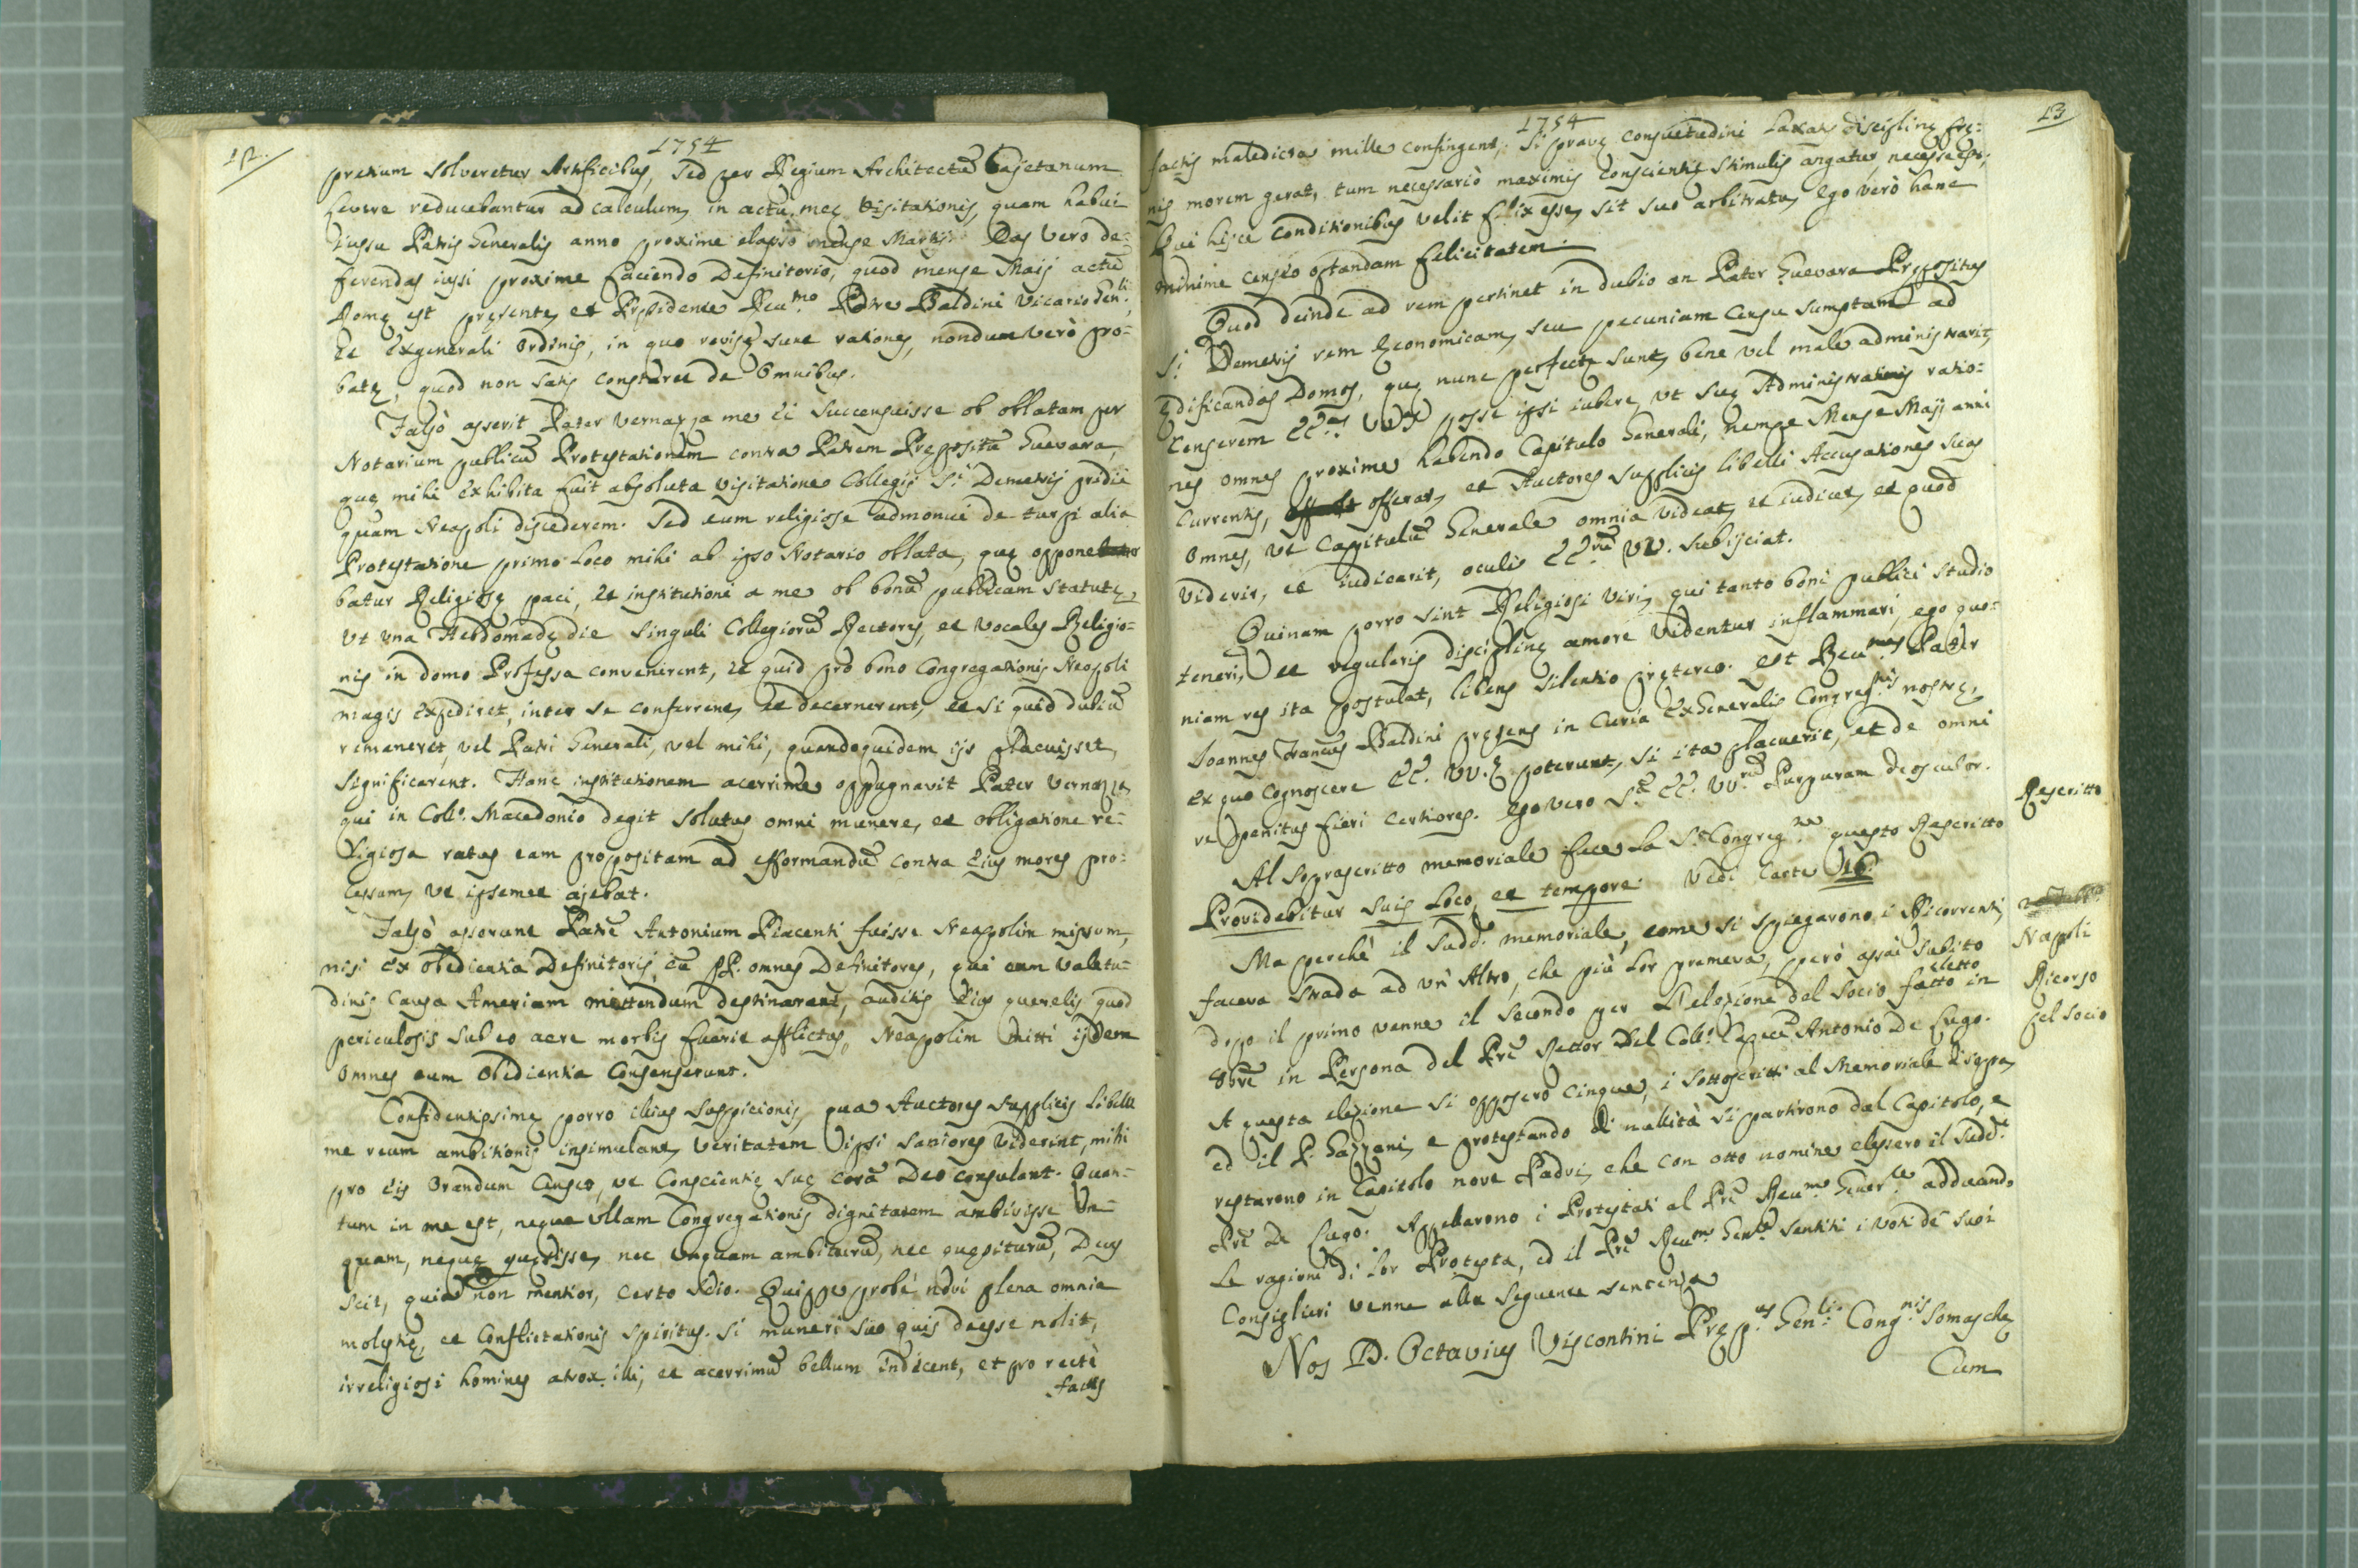 12.
1754
pretium solveretur Artificibus, sed per Regium Architectũ Cajetanum
severe reducebantur ad calculum, in actu meę Visitationis, quam habui
iussu Patris Generalis anno proxime elapso mense Martij. Eas vero de=
ferendas iussi proxime faciendo Definitorio, quod mense Maij actũ
Romę est pręsente, et Pręsidente Reu.mo Patre Baldini Vicario Gen.li,
et Exgenerali Ordinis, in quo revisę sunt rationes, nondum verò pro=
batę, quod non satis constaret de Omnibus.
Falsò asserit Pater Vernazza me ei succensuisse ob oblatam per
Notarium publicũ Protestationem contra Patrem Prępositũ Guevara,
quę mihi exhibita fuit absoluta visitatione Collegij S.i Demetrij pridie
quam Neapoli discederem. Sed eum religiose admonui de turpi alia
Protestatione primo loco mihi ab ipso Notario oblata, quę oppone
batur Religiosę paci, et institutioni a me ob bonũ publicam statutę,
ut una Hebdomadę die singuli Collegiorũ Rectores, et Vocales Religio=
nis in domo Professa convenirent, et quid prò bono Congregationis Neapoli
magis expediret, inter se conferrent, et decernerent, et si quid dubiũ
remaneret, vel Patri Generali, vel mihi, quandoquidem ijs placuisset,
significarent. Hanc institutionem acerrime oppugnavit Pater Vernazza,
qui in Coll.o Macedonio degit solutus omni munere, et obligatione re=
ligiosa ratus eam propositam ad efformandũ contra eius mores pro=
cessum, ut ipsemet ajebat.
Falsò asserunt Patrẽ Antonium Piacenti fuisse Neapolim missum,
nisi ex obedientia Definitorij, cũ PP. omnes Definitores, qui eum valetu=
dinis causa Ameriam mittendum destinarant, auditis eius querelis, quod
periculosis sub eo aere morbis fuerit afflictus, Neapolim mitti ijdem
omnes eum Obedientia Consenserunt.
Confidentissimę porro illius suspicionis, qua Auctores supplicis libelli
me reum ambitionis insimulant, veritatem ipsi saniores viderint, mihi
pro eis Orandum Censeo, ut Conscientię suę corã Deo consulant. Quan=
tum in me est, neque ullam Congregationis dignitatem ambivisse un=
quam, neque quęsisse, nec unquam ambiturũ, nec quęsiturũ, Deus
scit, quia non mentior, certo scio. Quippe probè novi plena omnia
molestię, et Conflictationis spiritus. Si muneri suo quis deesse nolit,
irreligiosi homines atrox illi, et acerrimũ bellum indicent, et pro rectè
factis
13
1754
factis maledicta mille confingent; Si pravę consuetudini laxatę disciplinę frę=
nis morem gerat, tum necessariò maximis Conscientię stimulis angatur, necesse est;
Qui hisce Conditionibus velit felix esse, sit suo arbitratu, ego verò hanc
minime censeo optandam felicitatem.
Quod deinde ad rem pertinet in dubio an Pater Guevara Prępositus
S.i Demetrij rem Economicam, seu pecuniam censu sumptam ad
ędificandas Domos, quę nunc perfectę sunt, bene vel male administrarit,
Censerem EE.as VV.as posse ipsi iubere, ut suę Administrationis ratio=
nes omnes proxime habendo Capitulo Generali, nempe Mense Maij anni
currentis, offerat, et Auctores supplicis libelli Accusationes suas
omnes, ut Capitulũ Generale omnia videat, et iudicet, et quod
viderit, et iudicarit, oculis EE.rũ VV. subijciat.
Quinam porro sint Religiosi viri, qui tanto boni publici studio
teneri, et regularis disciplinę amore videntur inflammari, ego quo=
niam res ita postulat, libens silentio prętereo. Est Reu.mus Pater
Ioannes Francus Baldini pręsens in Curia ExGeneralis Congreg.nis nostrę,
ex quo Cognoscere EE. VV. poterunt, si ita placuerit, et de omni
re penitus fieri certiores. Ego vero S.ę EE. VV.rũ Purpuram deosculor.
Al sopraseritto memoriale fece la S. Congreg.ne questo Rescritto
Providebitur suis loco, et tempore. Vedi Carte 16.
Rescritto
Ma perchè il sudd.o memoriale, come si spiegarono i Ricorrenti,
faceva strada ad un' Altro, che più lor premeva, però assai subito
dopo il primo venne il secondo per l'elezione del Socio fatto in
eletto
8bre in Persona del Prẽ Rettor del Coll.o Capece Antonio De Lugo.
Napoli
Ricorso
pel Socio
A questa elezione si opposero cinque, i sottoscritti al Memoriale di sopra,
ed il P. Gazzani, e protestando di nullità si partirono dal Capitolo, e
restarono in Capitolo nove Padri, che con otto nomine elessero il sudd.o
Prẽ De Lugo. Appellarono i Protestati al Prẽ Reu.mo Gener.le adducendo
le ragioni di lor Protesta, ed il Prẽ Reu.mo Gen.le sentiti i voti de' suoi
Consiglieri venne alla seguente sentenza
Nos D. Octavius Viscontini Pręp.us Gen.lis Cong.nis Somaschę
Cum